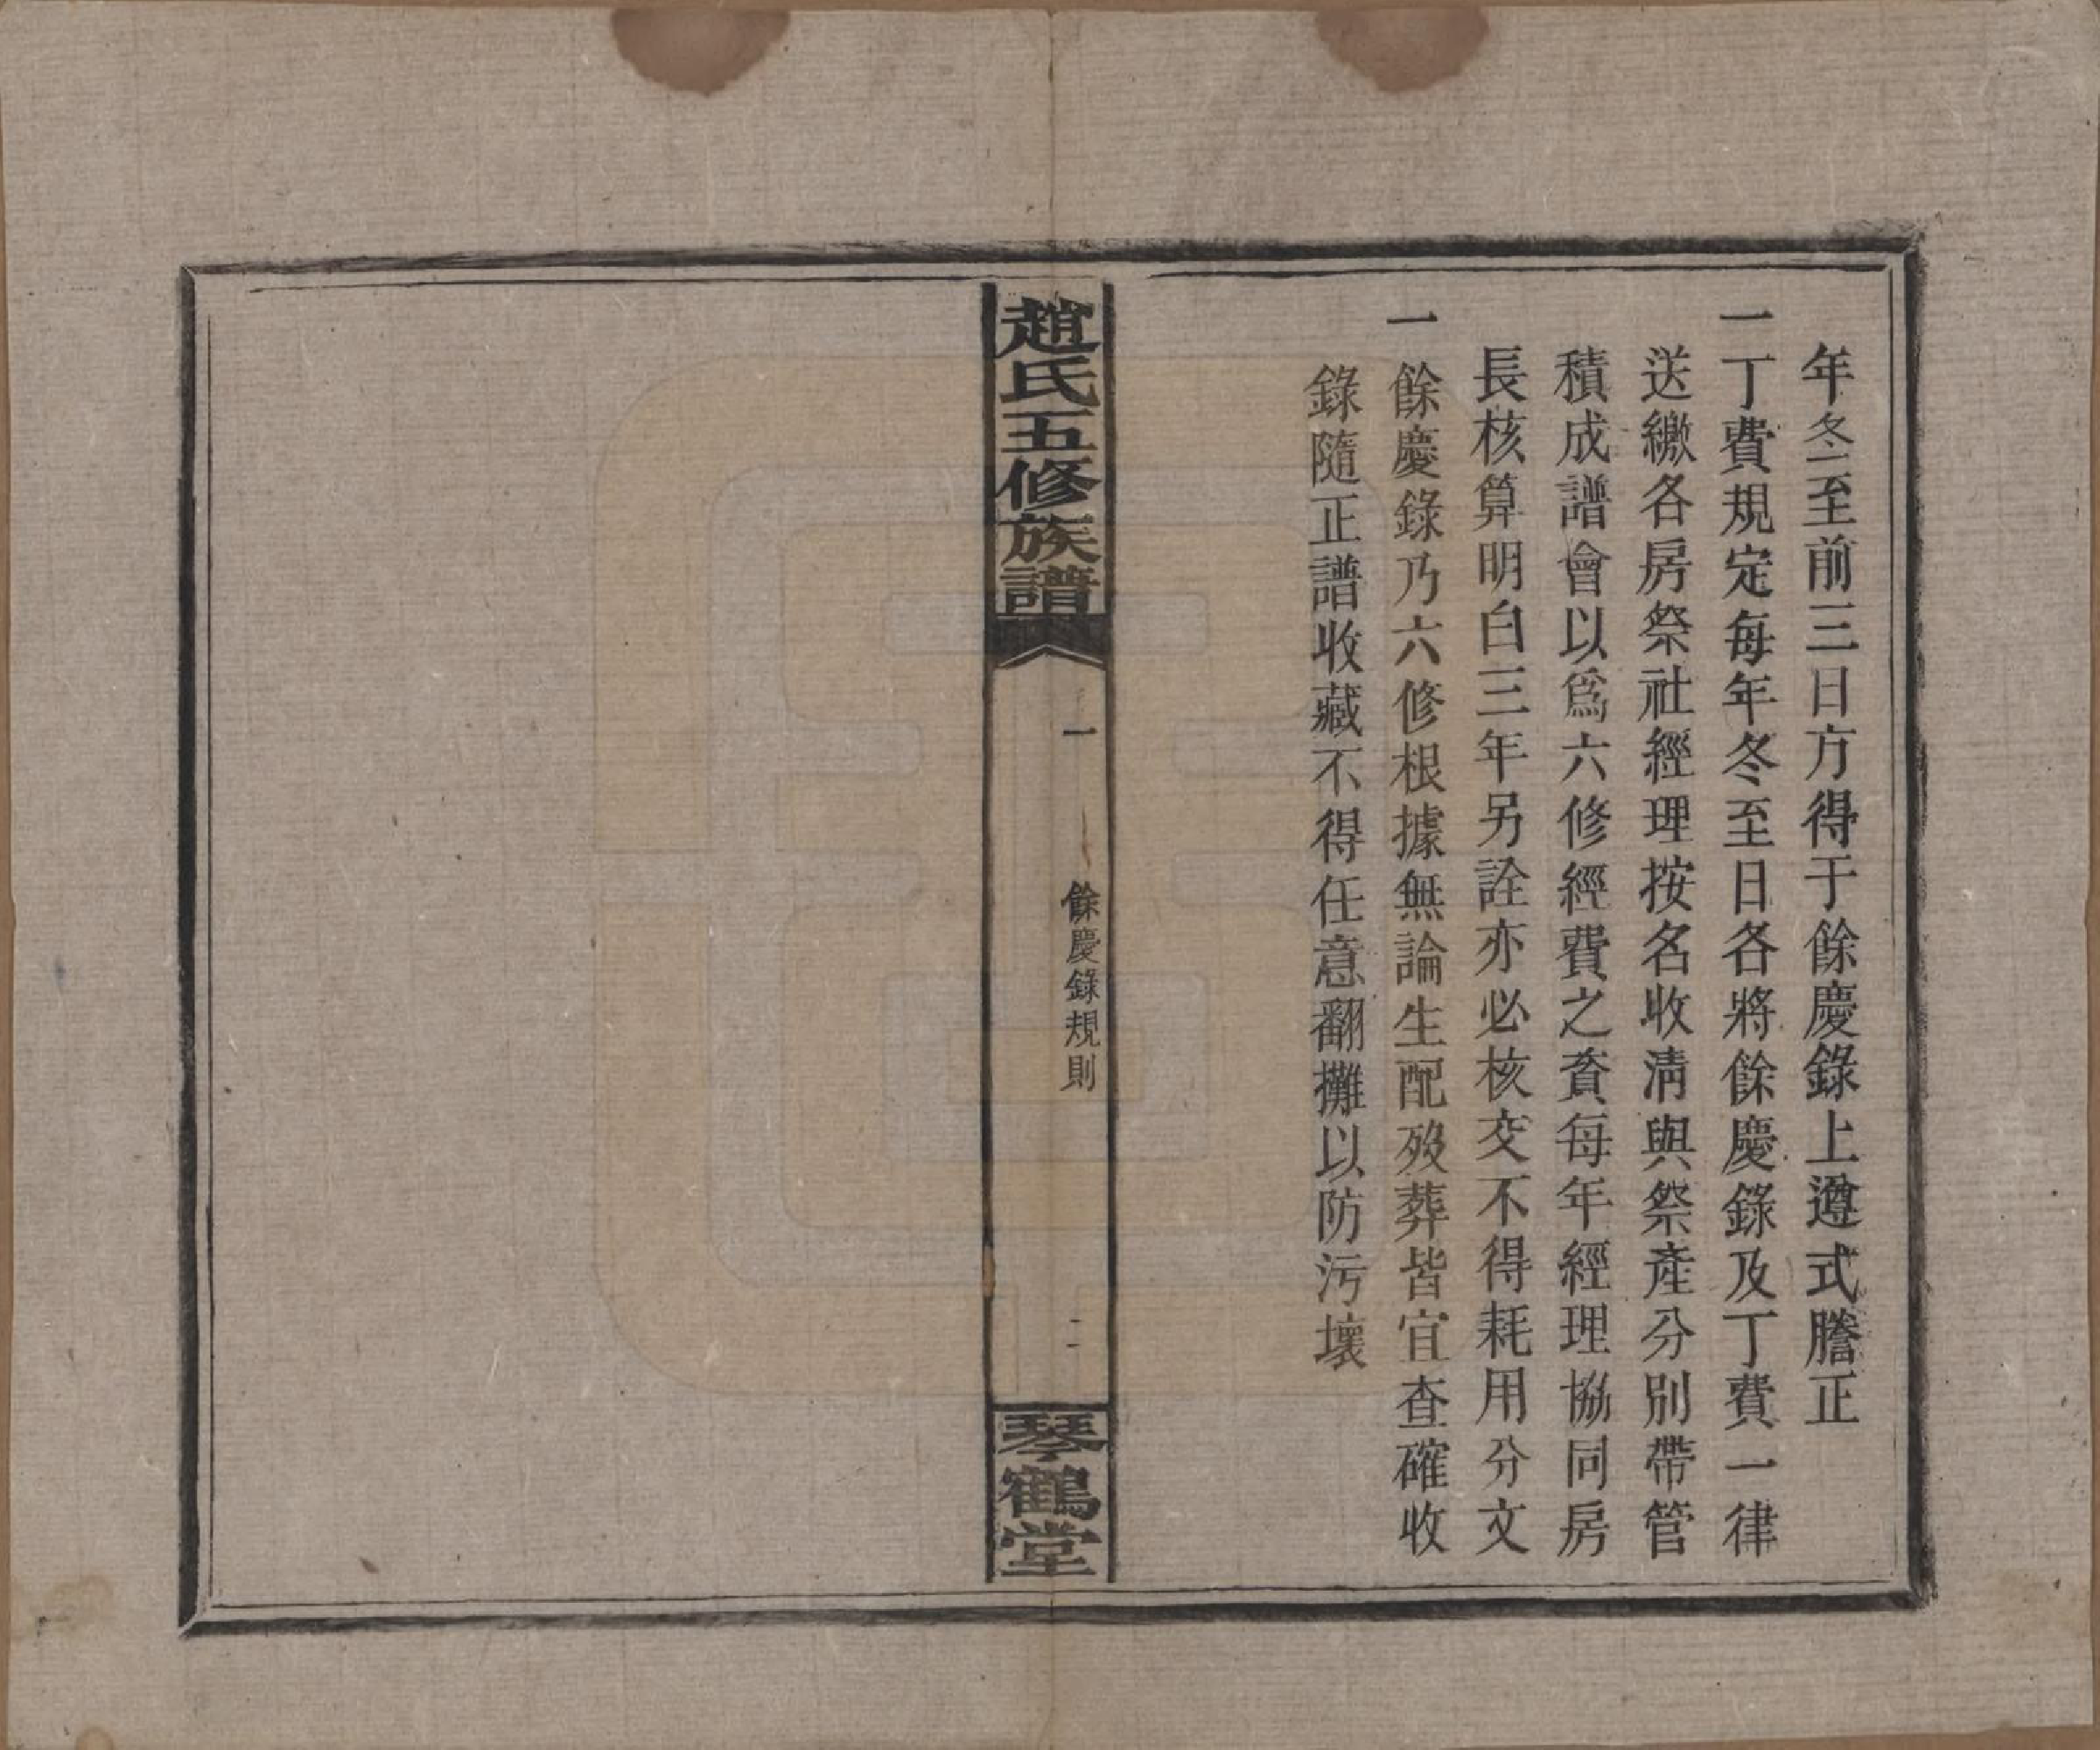 年冬至前三日方得于餘慶錄上遵式謄正
一丁費規定每年冬至日各將餘慶錄及丁費一律
送繳各房祭社經理按名收清與祭產分別帶管
積成譜會以爲六修經費之資每年經理協同房
長核算明白三年另詮亦必核交不得耗用分文
一餘慶錄乃六修根據無論生配殁葬皆宜查確收
錄隨正譜收藏不得任意翻攤以防污壞
趙氏五修族譜
一
餘慶錄規則
二
琴鶴堂